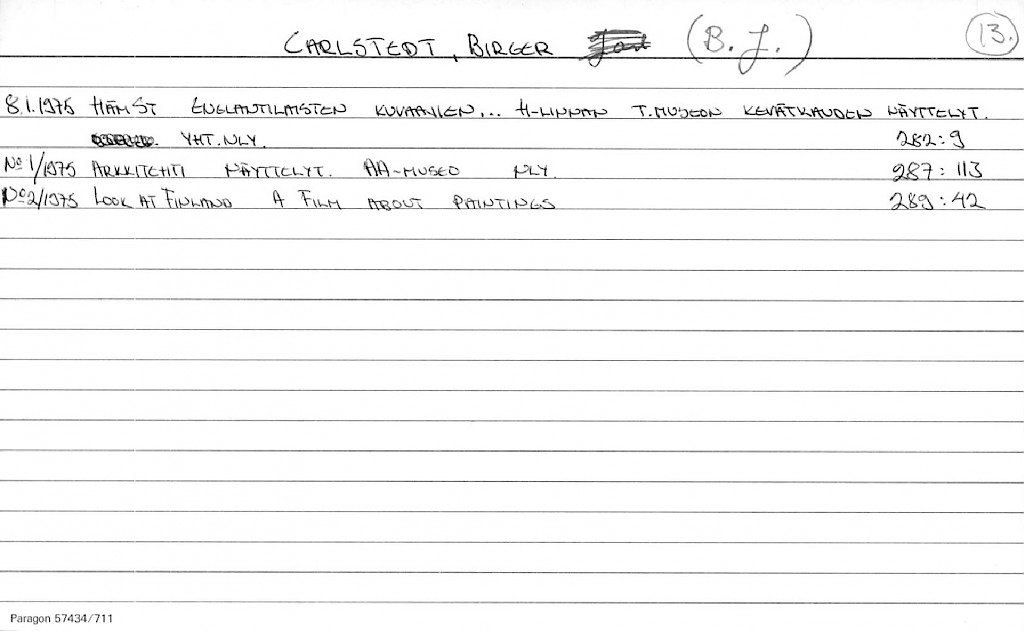 CARLSTEDT, BIRGER (B. J.) 13.
8.1.1975 HÄMST ENGLANTILAISTEN KUVAAJIEN... H-LINNAN T.MUSEON KEVÄTKAUDEN NÄYTTELYT.
YHT.NLY. 282:9
No 1/1975 ARKKITEHTI NÄYTTELYT. AA-MUSEO NLY. 287:113
No 2/1975 LOOK AT FINLAND A FILM ABOUT PAINTINGS 289:42
Paragon 57434/711